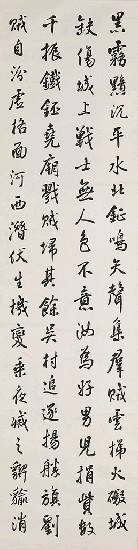 黑霧黯沉平水北鉦鳴矢聲集群賊雲梯火礮城
缺傷城上戰士無人色不意汝為好男兒捐貲數
千振鐵鉦堯廟戮賊歸其餘吳村追逐揚勝旗劉
賊自汾虛格面河西潛伏生機變乘夜滅之